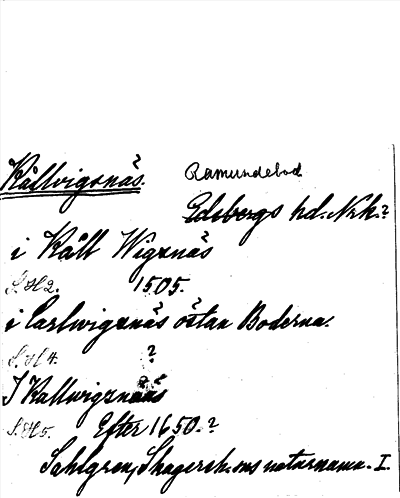 Kållvigsnäs.
Ramundebod
Edsbergs hd. Nrk.?
i Kåll Wigznäs
S. H 2. 1505.
i Carlwigznäs östan Boderna.
S. H 4. ?
I Kallwigznääs
S. H 5. Efter 1650.?
Sahlgren, Skagersh.ms naturnamn. I.